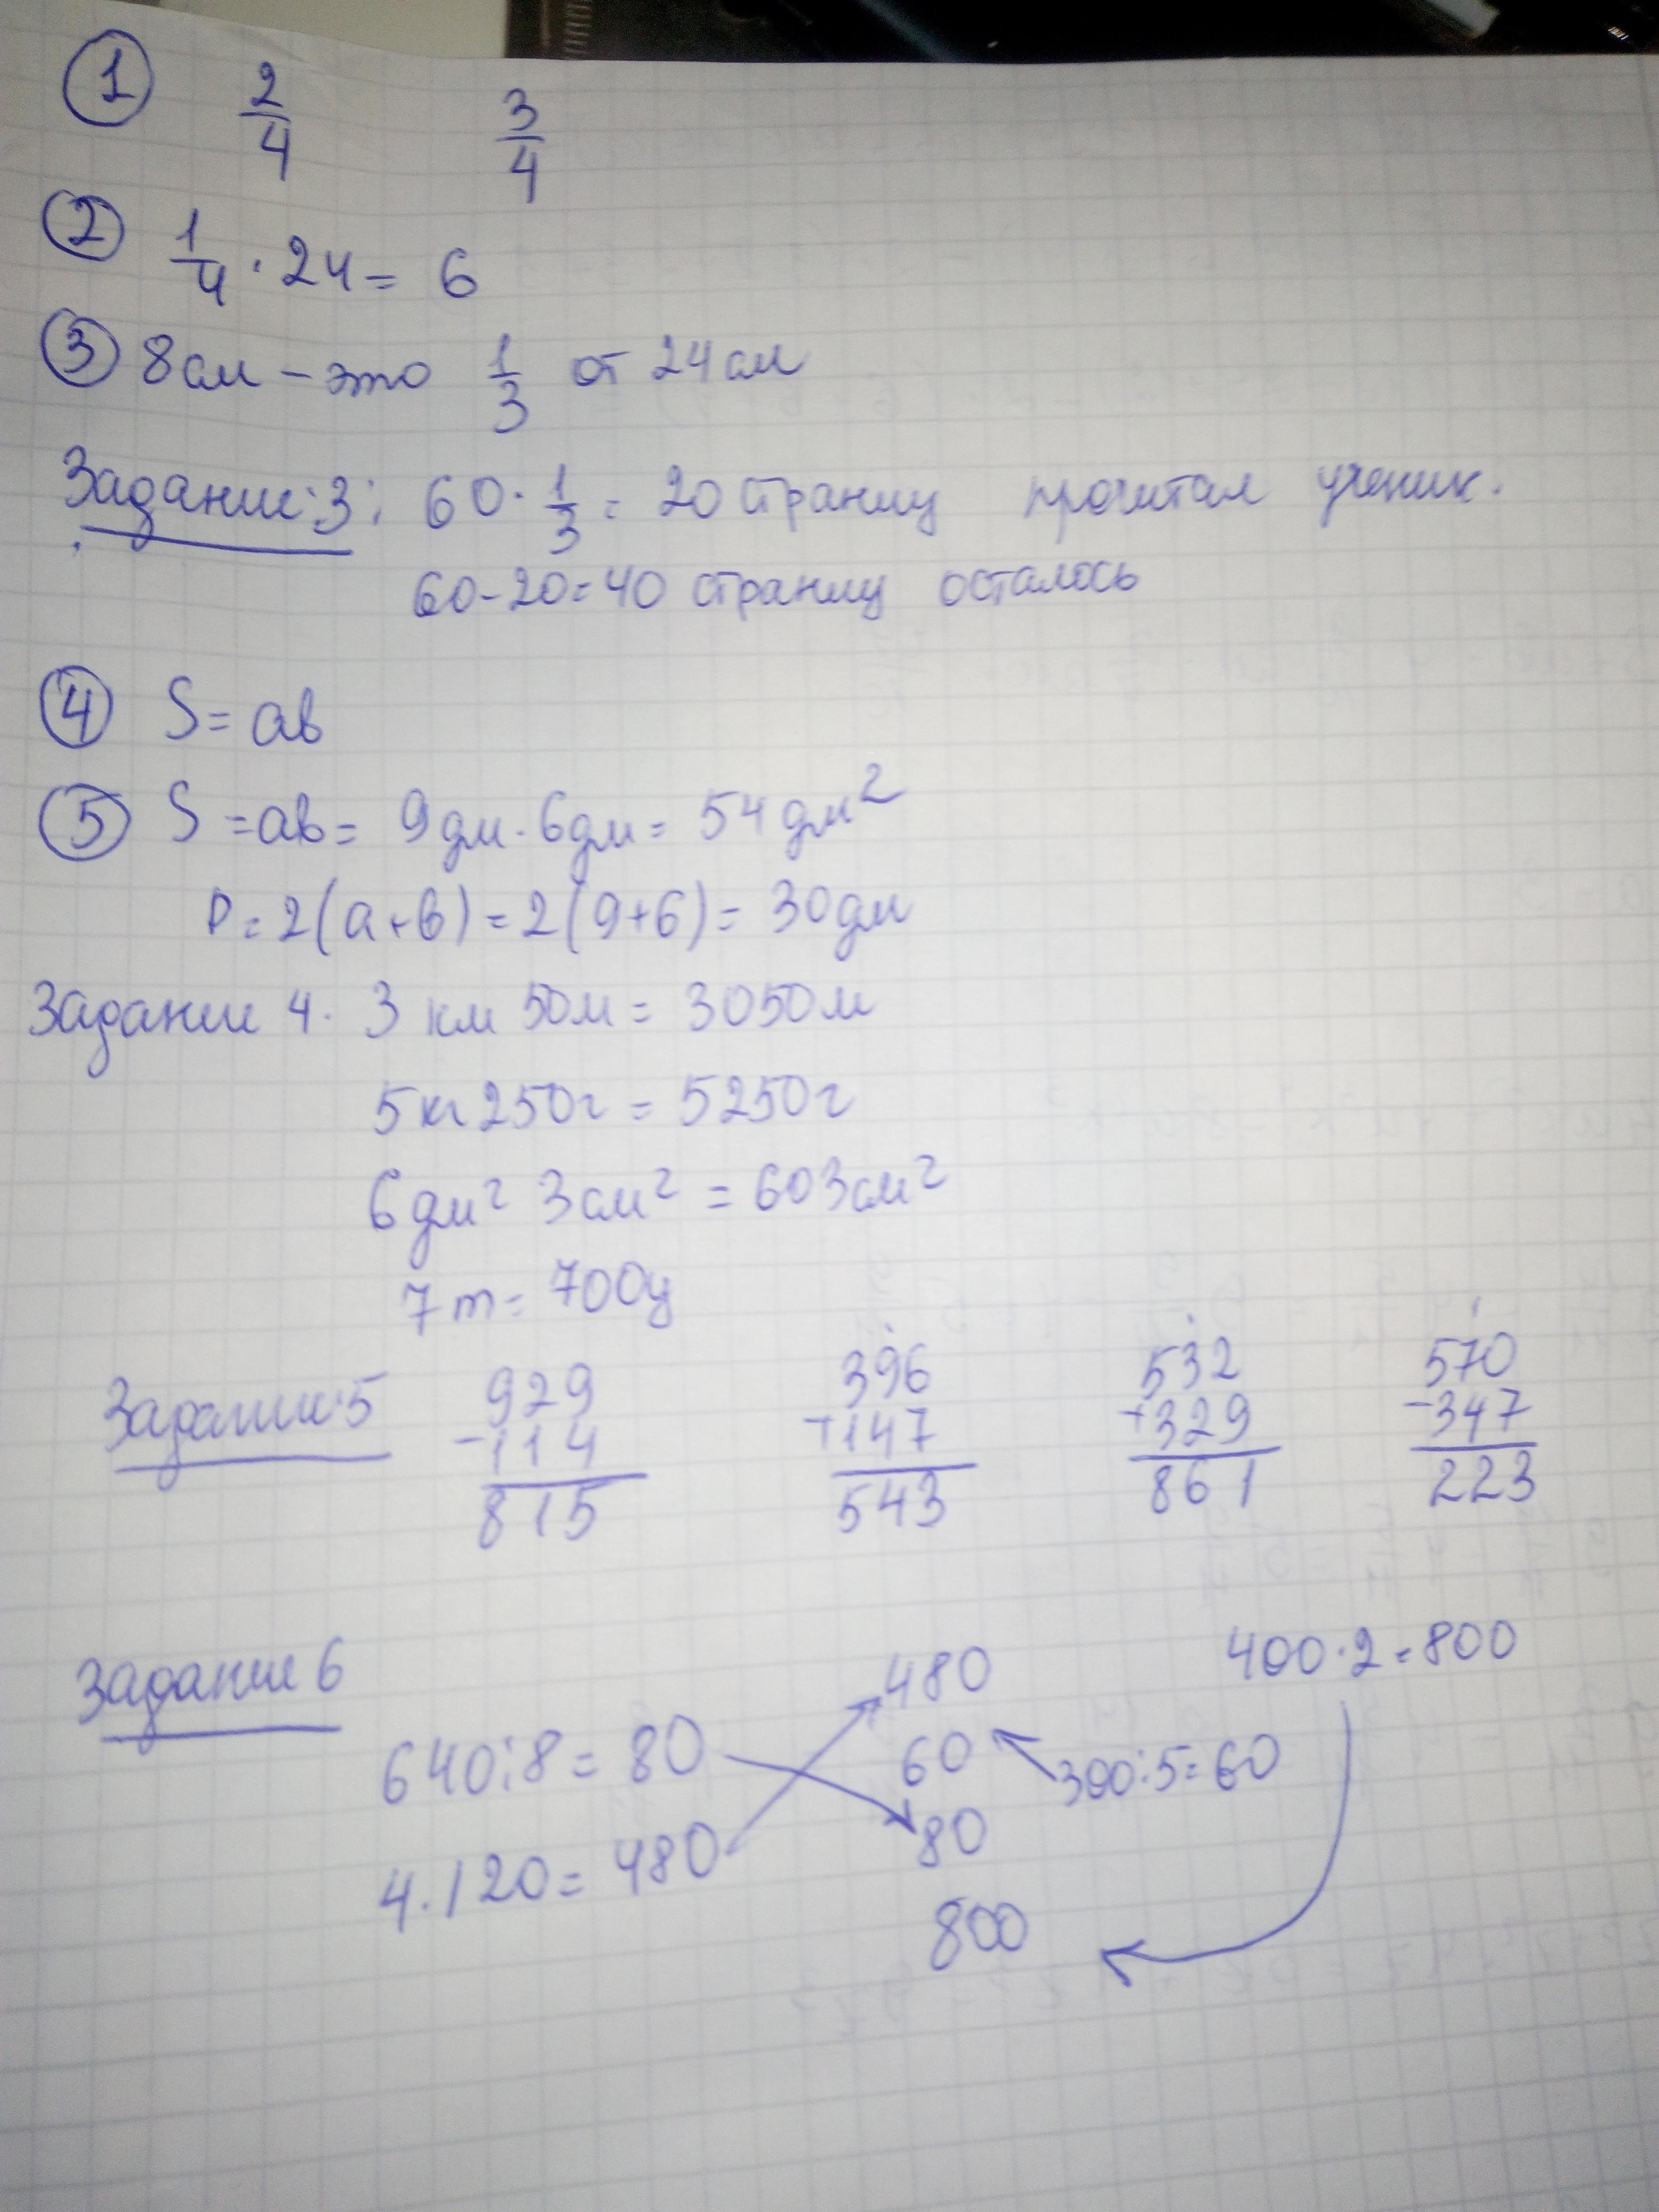 1 2/4 3/4
2 1/4 · 24 = 6
3 8см - это 1/3 от 24см
Задание 3: 60 · 1/3 = 20 страниц прочитал ученик.
60-20=40 страниц осталось
4 S = ab
5 S = ab = 9дм · 6дм = 54дм²
P = 2(a+b) = 2(9+6) = 30дм
Задание 4. 3 км 50м = 3050м
5кг 250г = 5250г
6дм² 3см² = 603см²
7т = 700ц
Задание 5 929 396 532 570
-114 +147 +329 -347
815 543 861 223
Задание 6 480 400·2=800
640:8=80 60 300:5=60
80
4·120=480
800